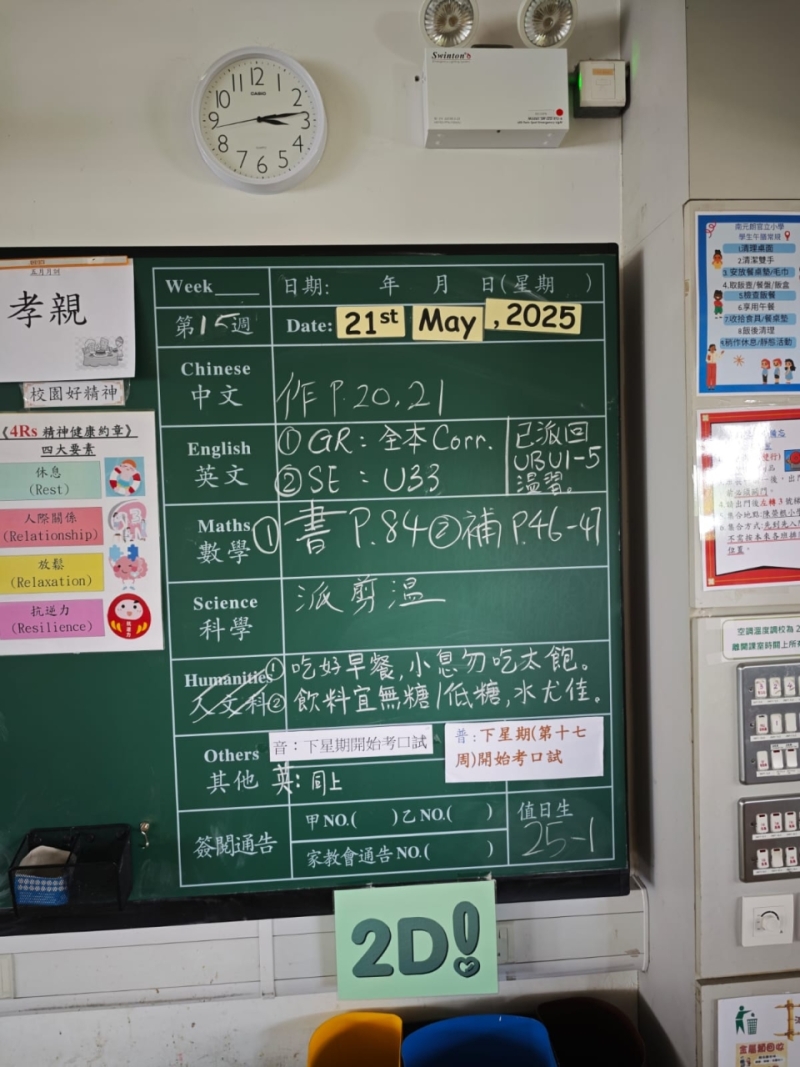 Swinton
CASIO
Week____ 日期: 年 月 日(星期 )
第15週 Date: 21st May, 2025
Chinese
中文 作 P.20,21
English
英文
① GR: 全本 Corr.
② SE: U33
已派回
UBU1-5
溫習。
Maths
數學 ① 書 P.84 ② 補 P.46-47
Science
科學 派剪溫
Humanities
人文科
① 吃好早餐,小息勿吃太飽。
② 飲料宜無糖/低糖,水尤佳。
Others
其他
音:下星期開始考口試
英:同上
普:下星期(第十七
周)開始考口試
簽閱通告
甲NO.( )乙NO.( )
家教會通告NO.( )
值日生
25-1
2D!
五月月訓
孝親
校園好精神
《4Rs 精神健康約章》
四大要素
休息
(Rest)
人際關係
(Relationship)
放鬆
(Relaxation)
抗逆力
(Resilience)
學生午膳常規
1清理桌面
2清潔雙手
3.安放餐桌墊/毛巾
4.取飯壺/餐盤/飯盒
5檢查飯餐
6享用午餐
7.收拾食具/餐桌墊
8飯後清理
9稍作休息/靜態活動
空調溫度調校為 2
離開課室時關上所